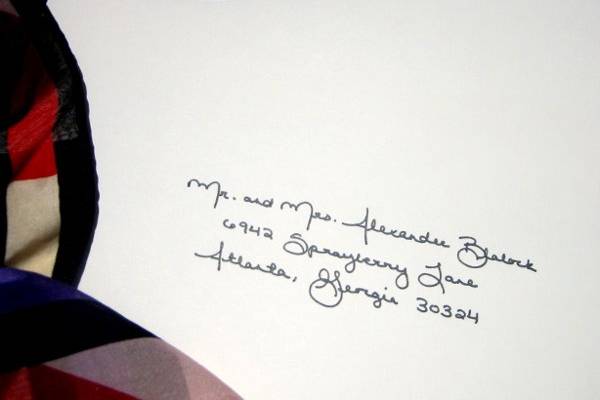 Mr. and Mrs. Alexander Blalock
6942 Sprayberry Lane
Atlanta, Georgia 30324